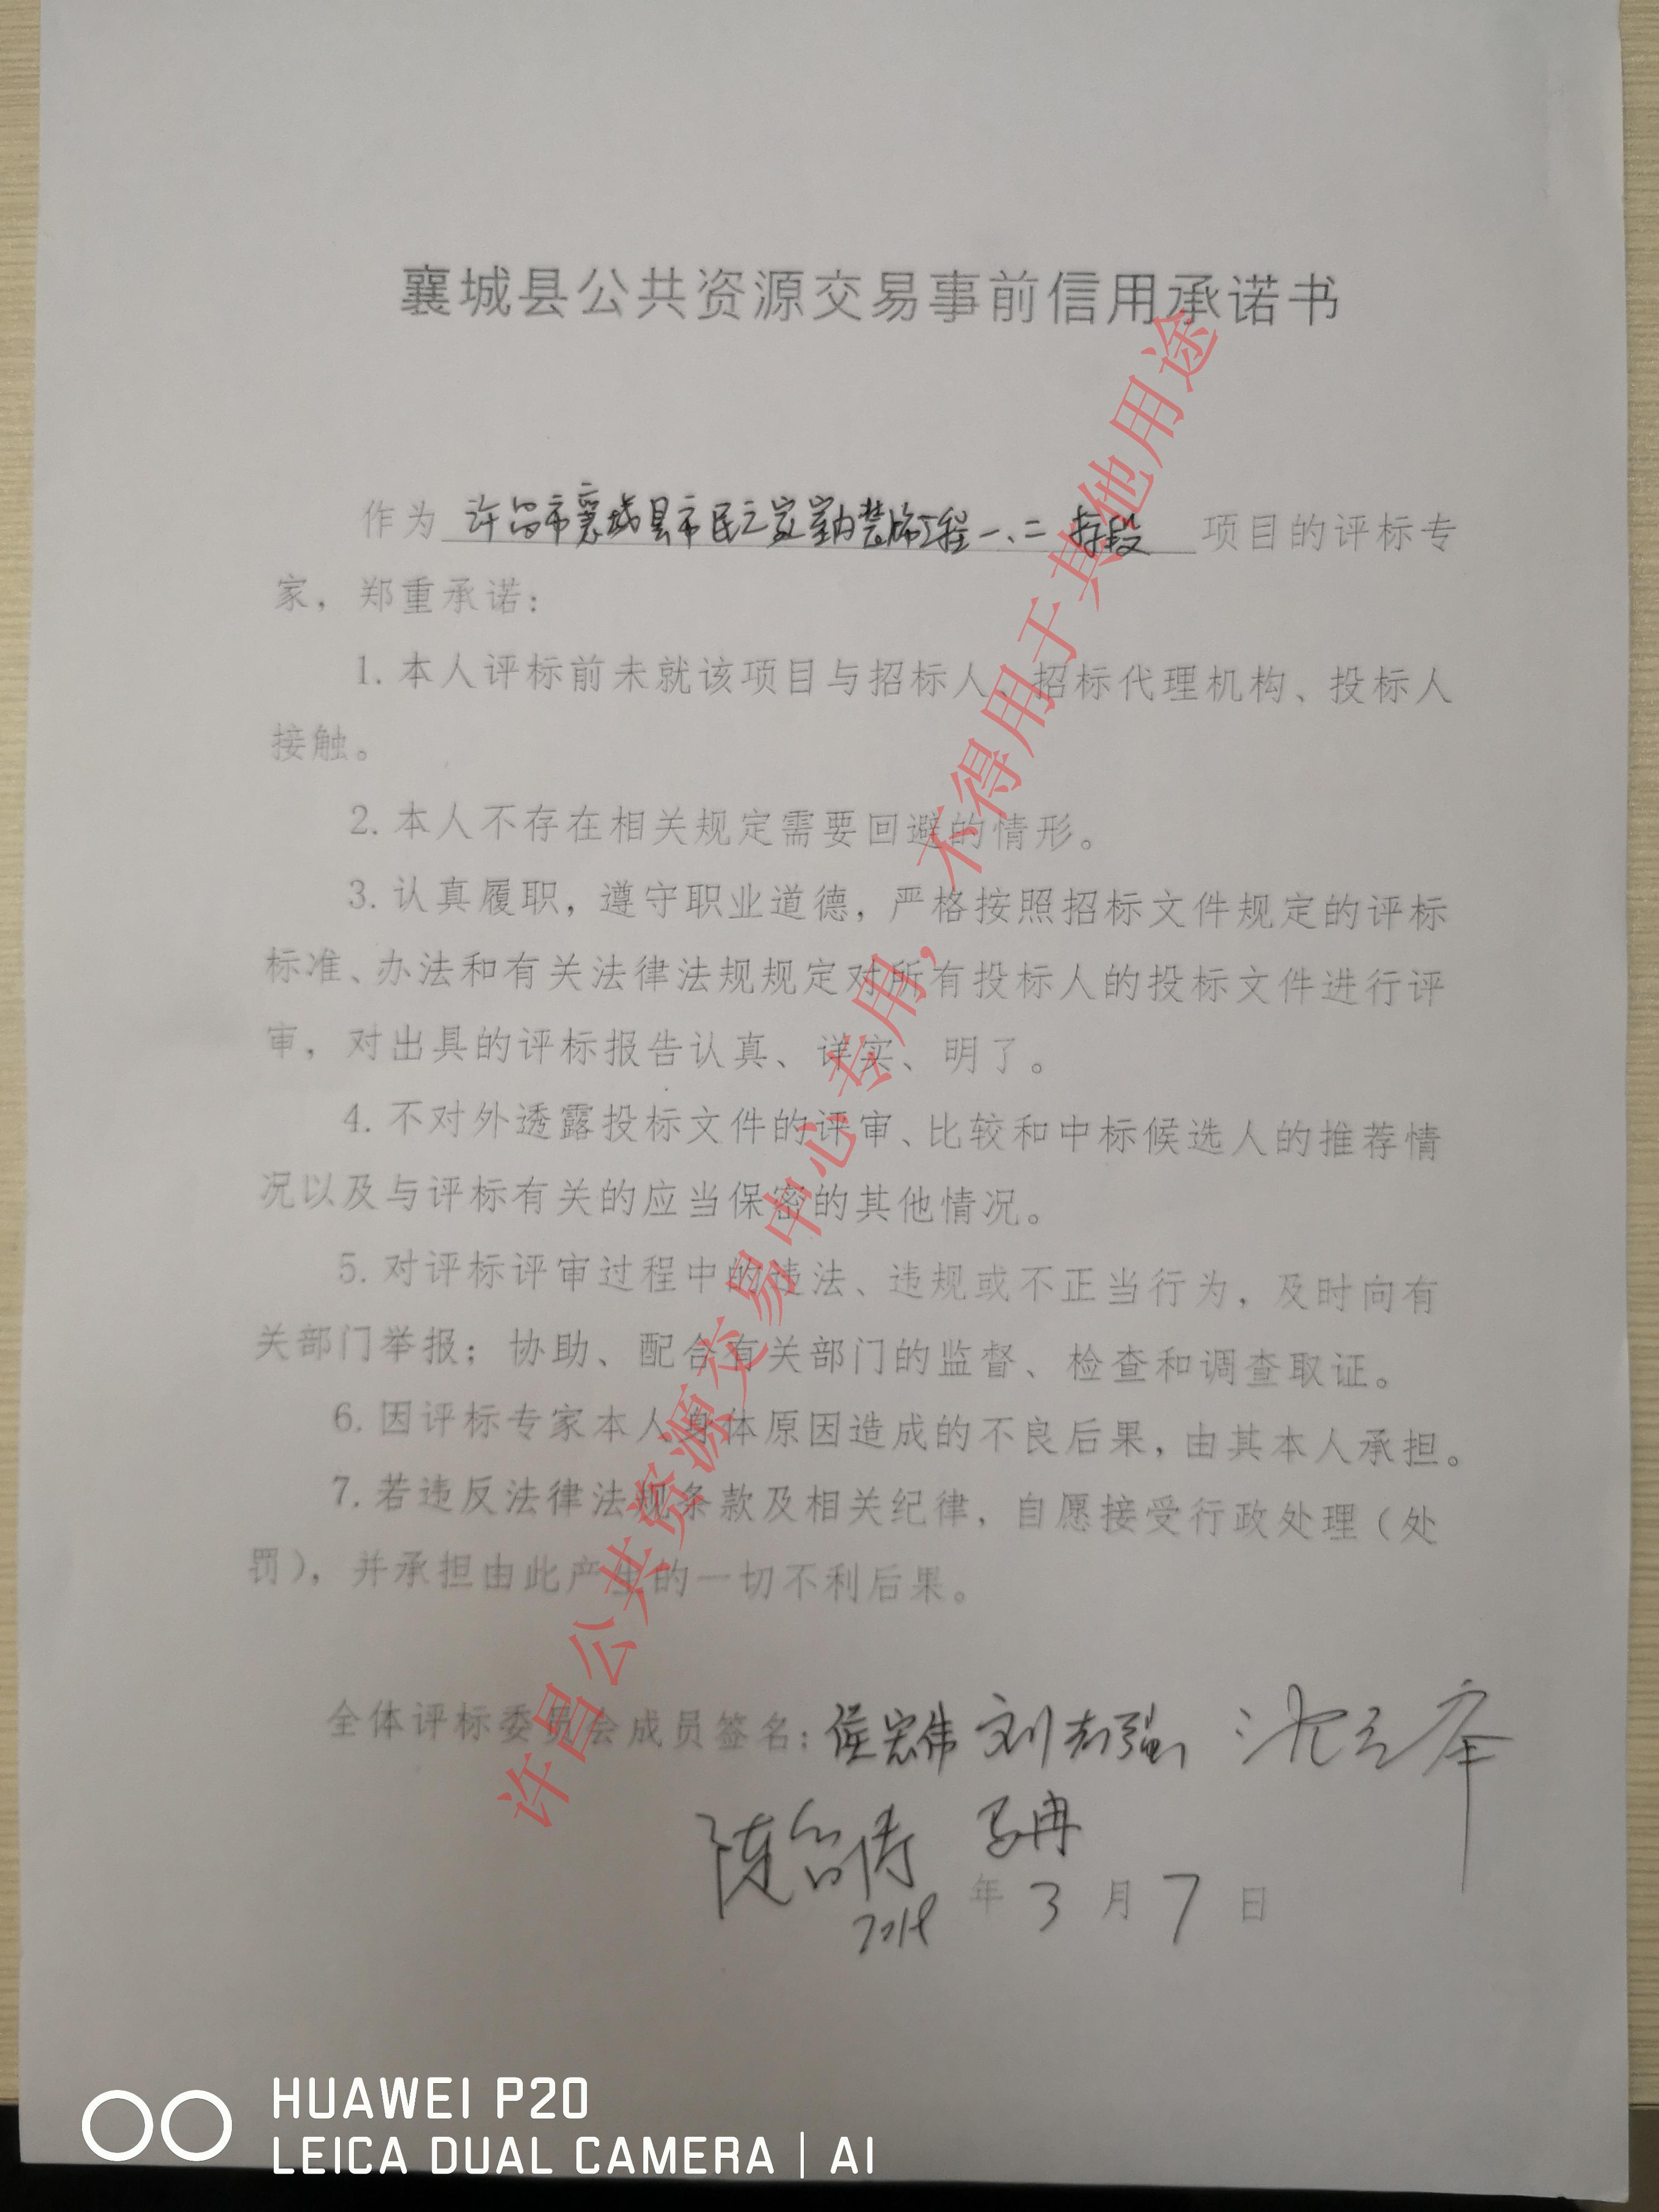 襄城县公共资源交易事前信用承诺书
作为 许昌市襄城县市民之家室内装饰工程一、二标段 项目的评标专
家，郑重承诺：
1. 本人评标前未就该项目与招标人、招标代理机构、投标人
接触。
2. 本人不存在相关规定需要回避的情形。
3. 认真履职，遵守职业道德，严格按照招标文件规定的评标
标准、办法和有关法律法规规定对所有投标人的投标文件进行评
审，对出具的评标报告认真、详实、明了。
4. 不对外透露投标文件的评审、比较和中标候选人的推荐情
况以及与评标有关的应当保密的其他情况。
5. 对评标评审过程中的违法、违规或不正当行为，及时向有
关部门举报；协助、配合有关部门的监督、检查和调查取证。
6. 因评标专家本人身体原因造成的不良后果，由其本人承担。
7. 若违反法律法规条款及相关纪律，自愿接受行政处理（处
罚），并承担由此产生的一切不利后果。
全体评标委员会成员签名：侯宏伟 刘志强
马冉
2019 年 3 月 7 日
许昌公共资源交易中心专用，不得用于其他用途
HUAWEI P20
LEICA DUAL CAMERA | AI